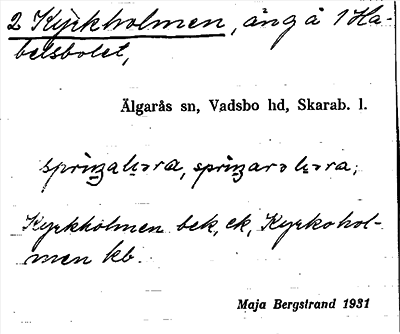 2 Kyrkholmen, äng å 1 Ha-
belsbolet,
Älgarås sn, Vadsbo hd, Skarab. l.
Kyrkholmen bek, ek, Kyrkohol-
men kb.
Maja Bergstrand 1931